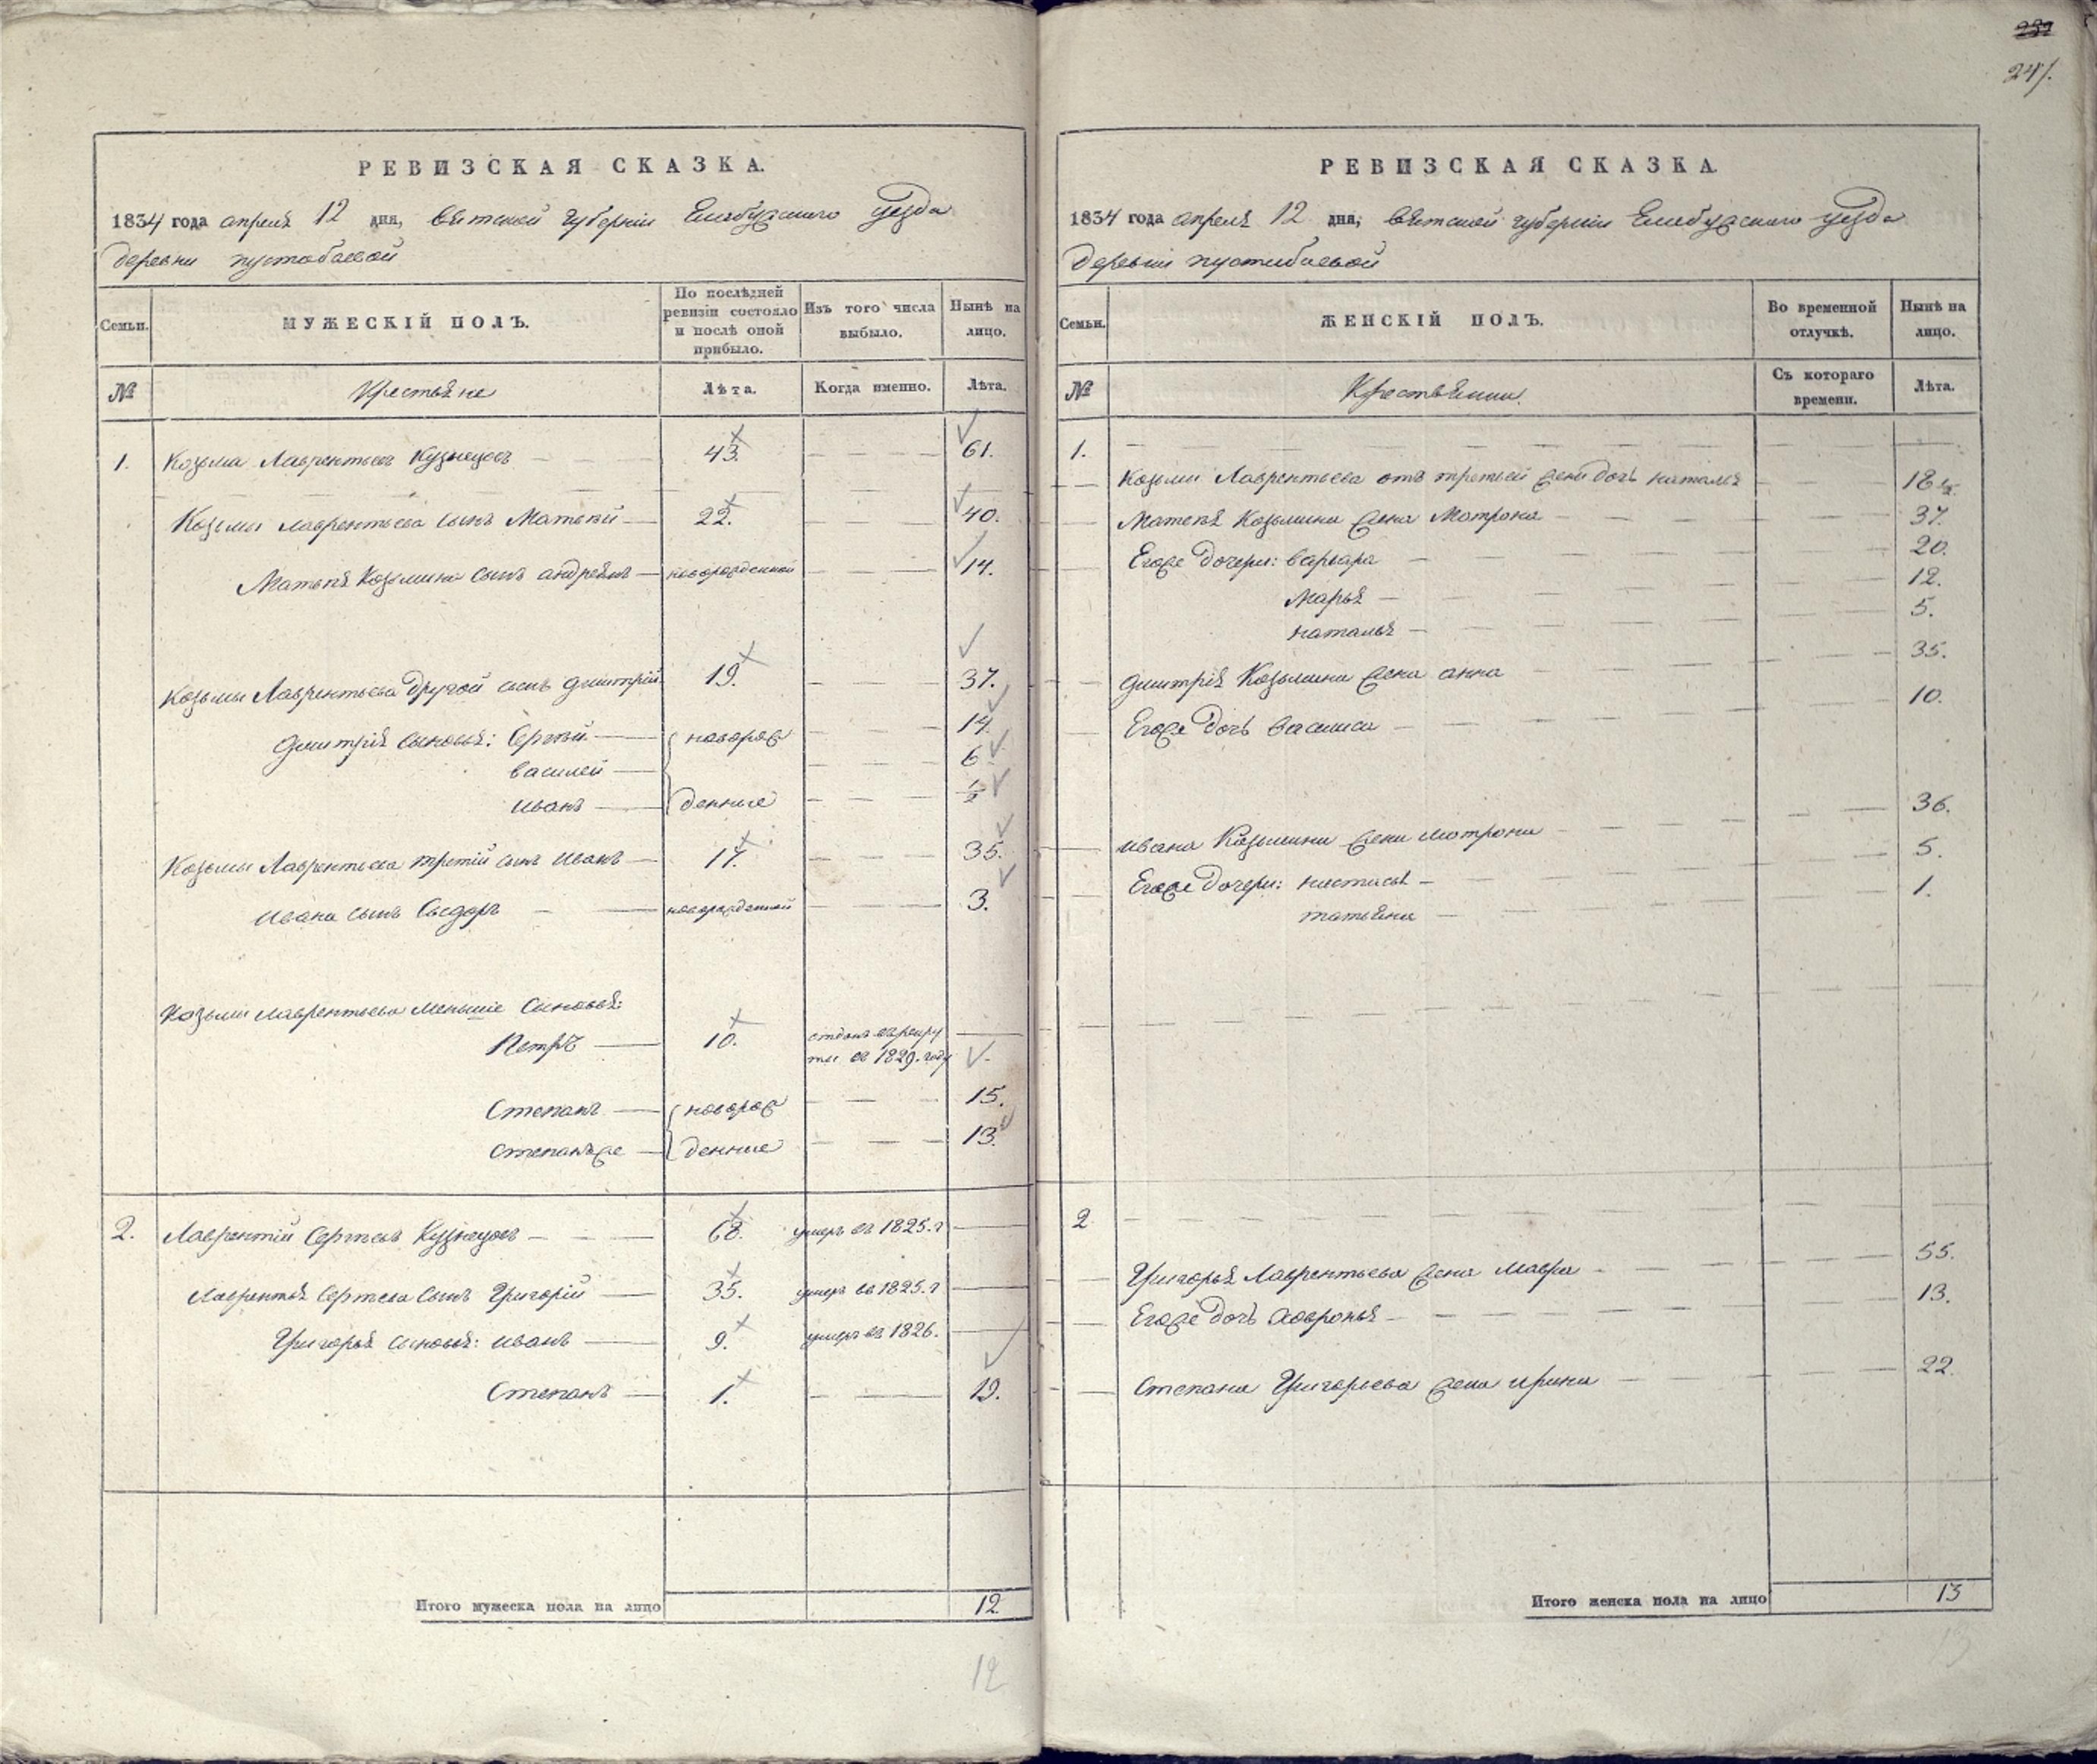 241.
РЕВИЗСКАЯ СКАЗКА.
1834 года апреля 12 дня, Вятской губернии Елабужского уезда
деревни пустобаевой
Семьи. МУЖЕСКІЙ ПОЛЪ. По послѣдней ревизіи состояло и послѣ оной прибыло. Изъ того числа выбыло. Нынѣ на лицо.
№ Крестьяне Лѣта. Когда именно. Лѣта.
1. Козьма Лаврентьевъ Кузнецовъ 43. 61.
Козьмы Лаврентьева сынъ Матвѣй 22. 40.
Матвѣя Козьмина сынъ андреянъ новорожденной 14.
Козьмы Лаврентьева другой сынъ дмитрій 19. 37.
Дмитрія сыновья: Сергѣй новорож 14.
василей 6
иванъ денные 1/2
Козьмы Лаврентьева третій сынъ иванъ 17. 35.
ивана сынъ Сидоръ новорожденной 3.
Козьмы Лаврентьева меньшіе сыновья:
Петръ 10. отданъ въ рекру
ты въ 1829. году
Степанъ новорож 15.
Степанъже денные 13.
2. Лаврентій Сергѣевъ Кузнецовъ 68. умеръ въ 1825. г
Лаврентья Сергѣева сынъ Григорій 35. умеръ въ 1825. г
Григорья сыновья: иванъ 9. умеръ въ 1826.
Степанъ 1. 19.
Итого мужеска пола на лицо 12
12
РЕВИЗСКАЯ СКАЗКА.
1834 года апреля 12 дня, Вятской губернии Елабужского уезда
деревни пустобаевой
Семьи. ЖЕНСКІЙ ПОЛЪ. Во временной отлучкѣ. Нынѣ на лицо.
№ Съ котораго времени. Лѣта.
1.
Козьмы Лаврентьева отъ третьей жены дочь наталья 18
Матвѣя Козьмина жена Матрона 37.
Егоже дочери: варвара 20.
Марья 12.
наталья 5.
Дмитрія Козьмина жена анна 35.
Егоже дочь василиса 10.
ивана Козьмина жена матрона 36.
Егоже дочери: настасья 5.
татьяна 1.
2
Григорья Лаврентьева жена мавра 55.
Егоже дочь ховронья 13.
Степана Григорьева жена ирина 22.
Итого женска пола на лицо 13
13